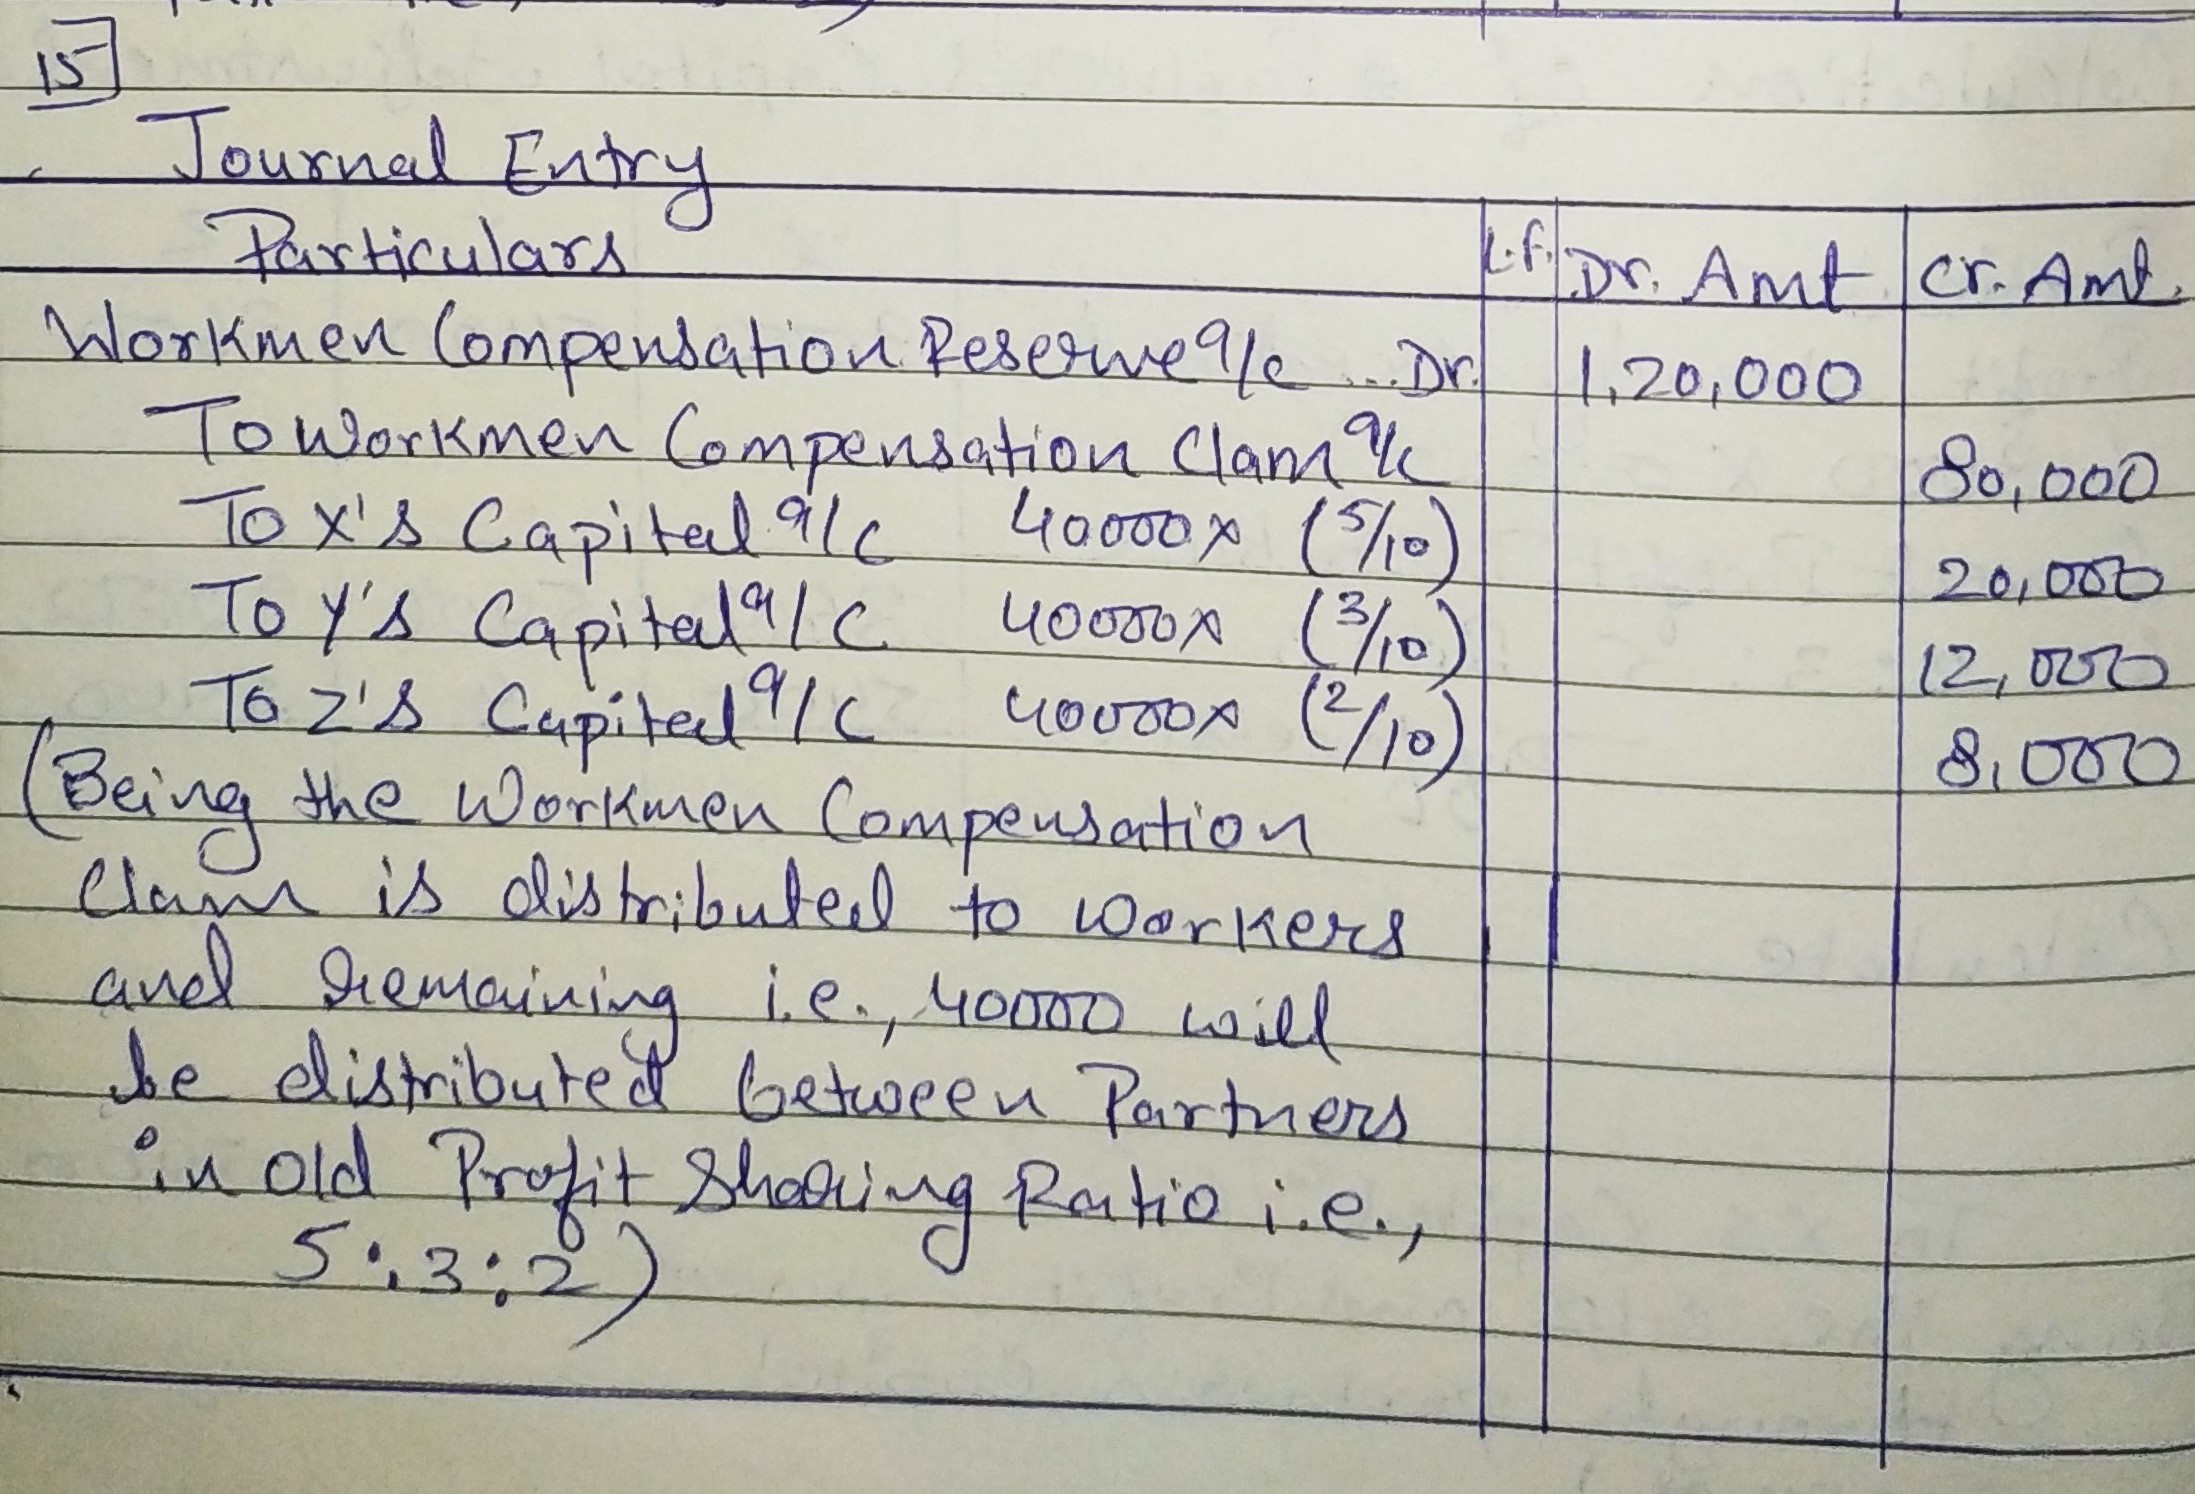 15
Journal Entry
Particulars L.F. Dr. Amt Cr. Amt.
Workmen Compensation Reserve a/c ... Dr. 1,20,000
To Workmen Compensation Clam a/c 80,000
To X's Capital a/c 40000x (5/10) 20,000
To Y's Capital a/c 40000x (3/10) 12,000
To Z's Capital a/c 40000x (2/10) 8,000
(Being the Workmen Compensation
Clam is distributed to workers
and remaining i.e., 40000 will
be distributed between Partners
in old Profit Sharing Ratio i.e.,
5:3:2)